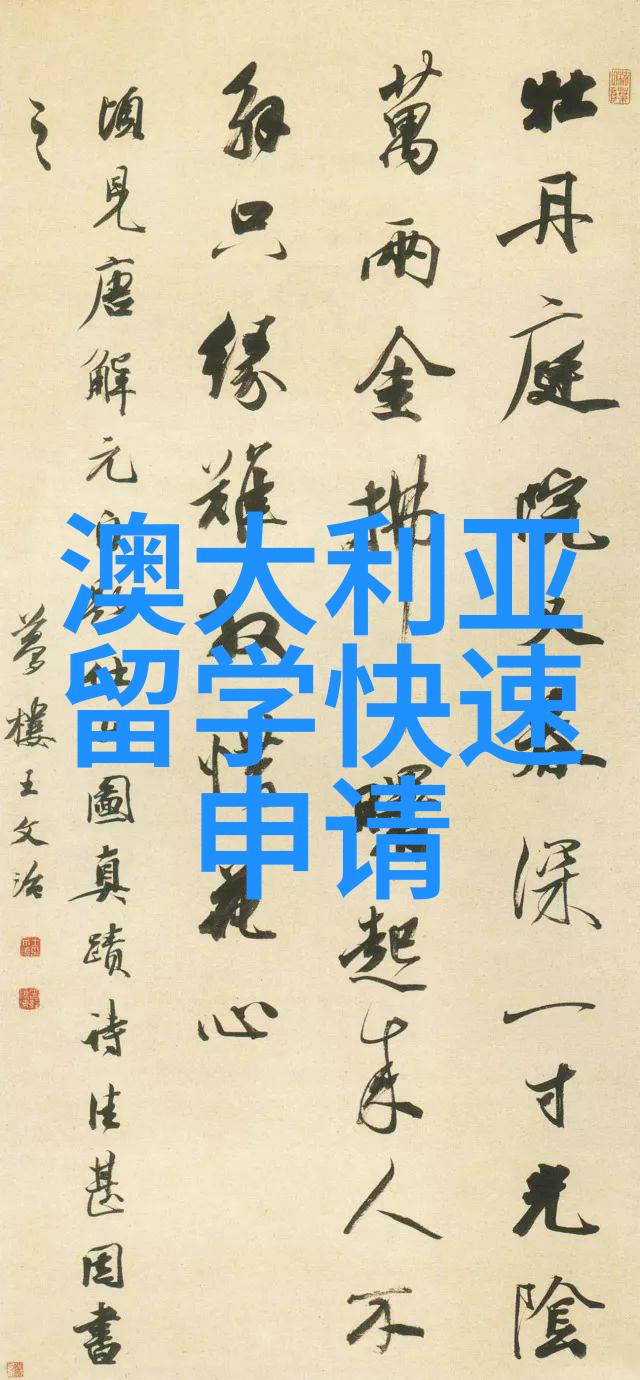 澳大利亚
留学快速
申请
牡丹庭院又春深一寸光陰
萬兩金拂曙起來人不
解只緣難放惜花心
頃見唐解元仕女圖真蹟詩佳甚因書
之
夢樓王文治